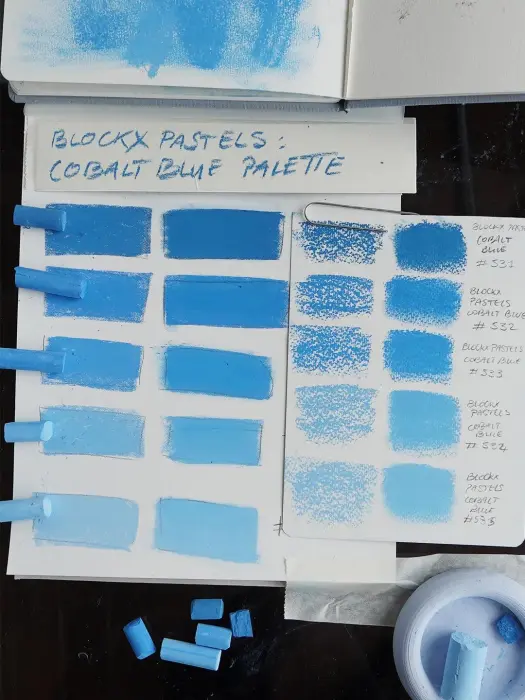 BLOCKX PASTELS:
COBALT BLUE PALETTE
BLOCKX PASTE
COBALT
BLUE
# 531
BLOCKX
PASTELS
COBALT BLUE
# 532
BLOCKX PASTELS
COBALT BLUE
# 533
BLOCKX
PASTELS
COBALT
BLUE
# 534
BLOCKX
PASTELS
COBALT
BLUE
#535